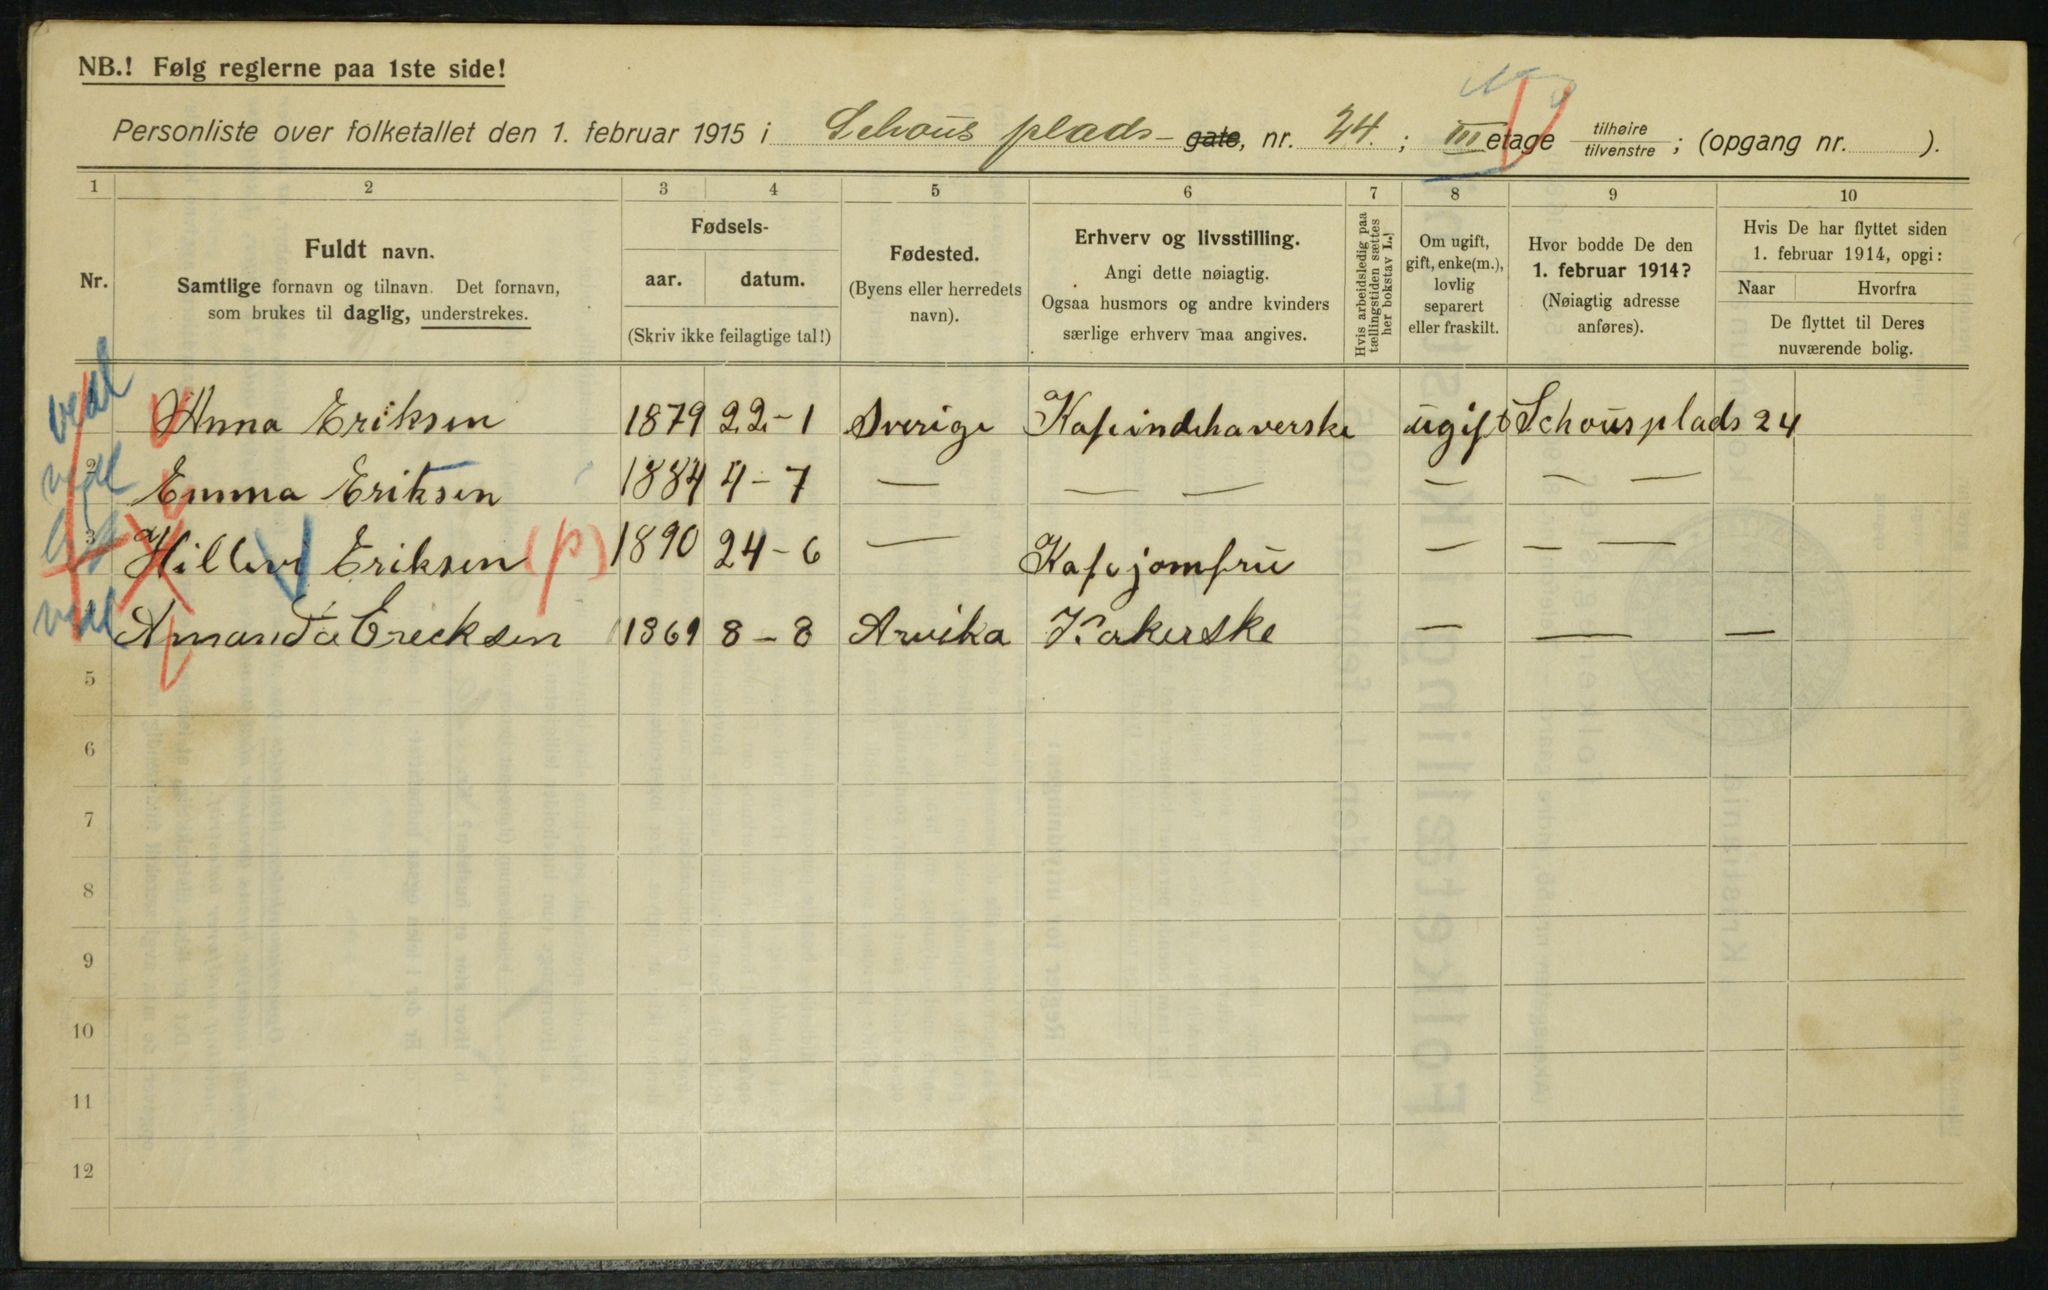 NB.! Følg reglerne paa 1ste side!
Personliste over folketallet den 1. februar 1915 i Schous plads – gate, nr. 24. ; III etage tilhøire tilvenstre ; (opgang nr. ).
1 2 3 4 5 6 7 8 9 10
Nr.
Fuldt navn.
Samtlige fornavn og tilnavn. Det fornavn,
som brukes til daglig, understrekes.
Fødsels-
aar. datum.
(Skriv ikke feilagtige tal!)
Fødested.
(Byens eller herredets
navn).
Erhverv og livsstilling.
Angi dette nøiagtig.
Ogsaa husmors og andre kvinders
særlige erhverv maa angives.
Hvis arbeidsledig paa
tællingstiden sættes
her bokstav L.!
Om ugift,
gift, enke(m.),
lovlig
separert
eller fraskilt.
Hvor bodde De den
1. februar 1914?
(Nøiagtig adresse
anføres).
Hvis De har flyttet siden
1. februar 1914, opgi:
Naar Hvorfra
De flyttet til Deres
nuværende bolig.
Anna Eriksen 1879 22–1 Sverige Kafeindehaverske ugift Schousplads 24
2 Emma Eriksen 1884 4–7 — — — — — —
3 Eriksen (p) 1890 24–6 — Kafejomfru — — —
Amanda Erecksen 1869 8–8 Arvika Kokerske — — —
5
6
7
8
9
10
11
12